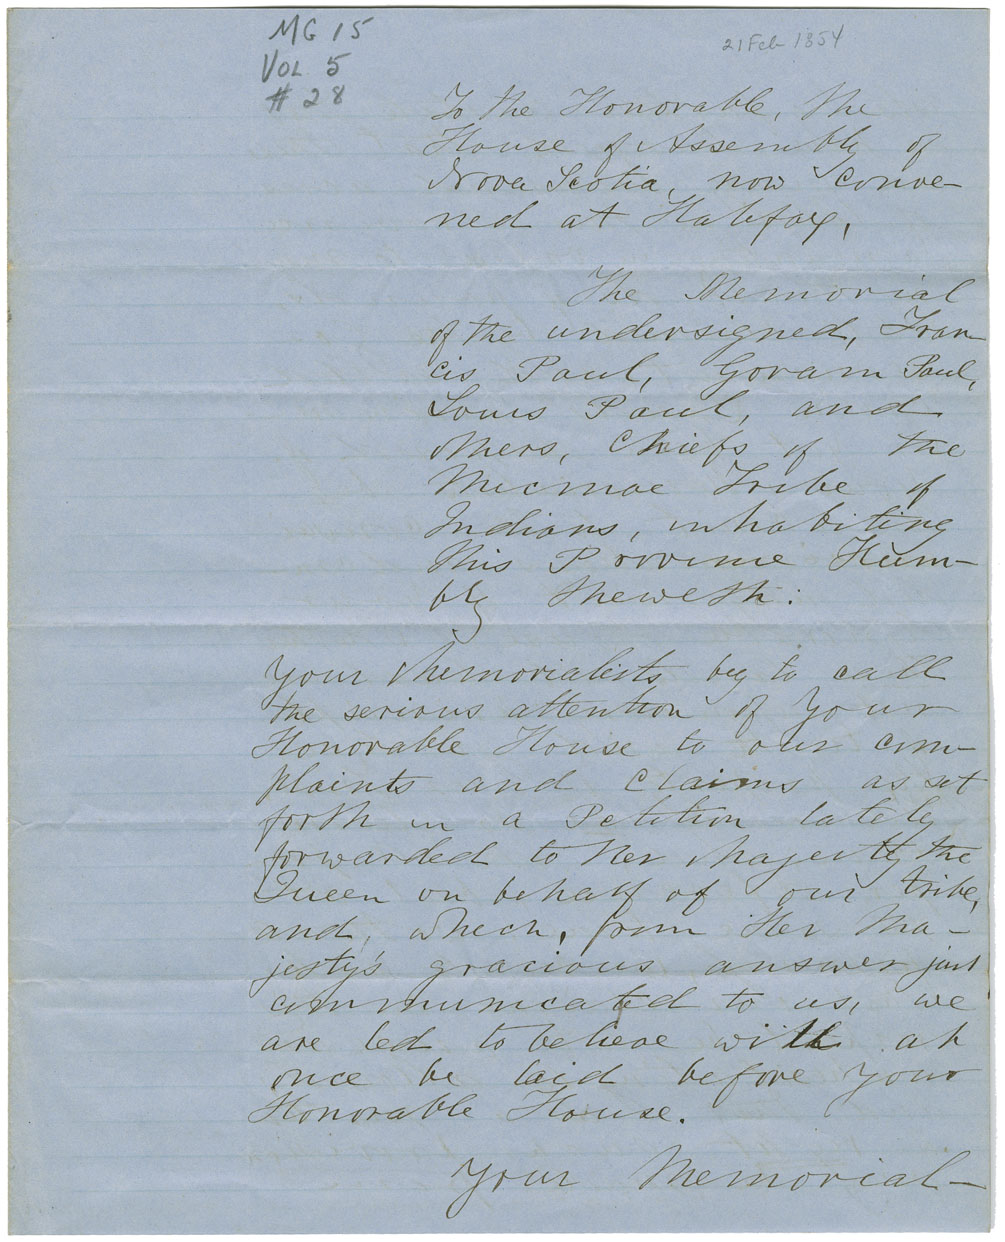 MG 15
Vol 5
# 28
21 Feb 1854
To the Honorable, the
House of Assembly of
Nova Scotia, now conve-
ned at Halifax,
The Memorial
of the undersigned, Fran-
cis Paul, Goram Paul,
Louis Paul, and
others, Chiefs of the
Micmac Tribe of
Indians, inhabiting
this Province Hum-
bly Sheweth:
Your Memorialists beg to call
the serious attention of Your
Honorable House to our com-
plaints and claims as set
forth in a Petition lately
forwarded to Her Majesty the
Queen on behalf of our tribe,
and, which, from Her Ma-
jesty's gracious answer just
communicated to us, we
are led to believe will at
once be laid before your
Honorable House.
Your Memorial-